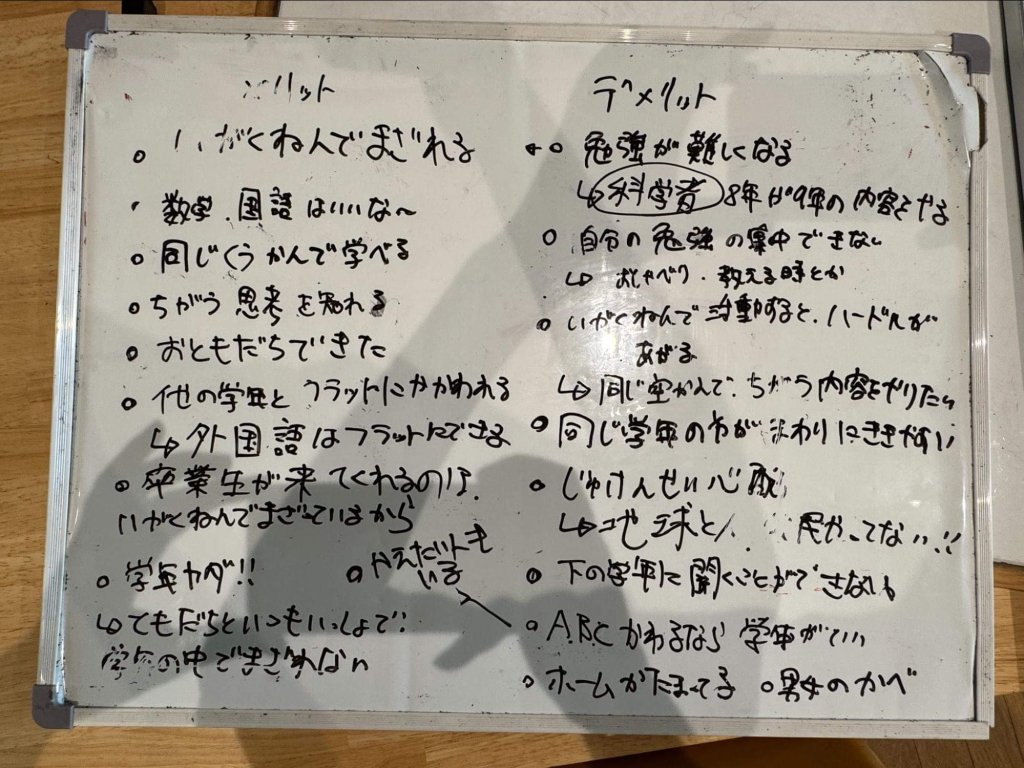 メリット
いがくねんでまざれる
数学、国語はいいな〜
同じくうかんで学べる
ちがう思考を知れる
おともだちできた
他の学年とフラットにかかわれる
↳外国語はフラットにできる
卒業生が来てくれるのは、
いがくねんでまざっているから
学年ヤダ!!
↳てもだちといつもいっしょで!
学年の中でまざれない
かえたい人も
いる
デメリット
勉強が難しくなる
↳科学者 8年が9年の内容をやる
自分の勉強の集中できない
↳おしゃべり、教える時とか
いがくねんで活動すると、ハードルが
あがる
↳同じ空かんで、ちがう内容をやりたい
同じ学年の方がまわりにききやすい
じゅけんせい心配
↳地球と
下の学年に聞くことができない
ABCかわるなら学年がいい
ホームかたまってる
男女のかべ